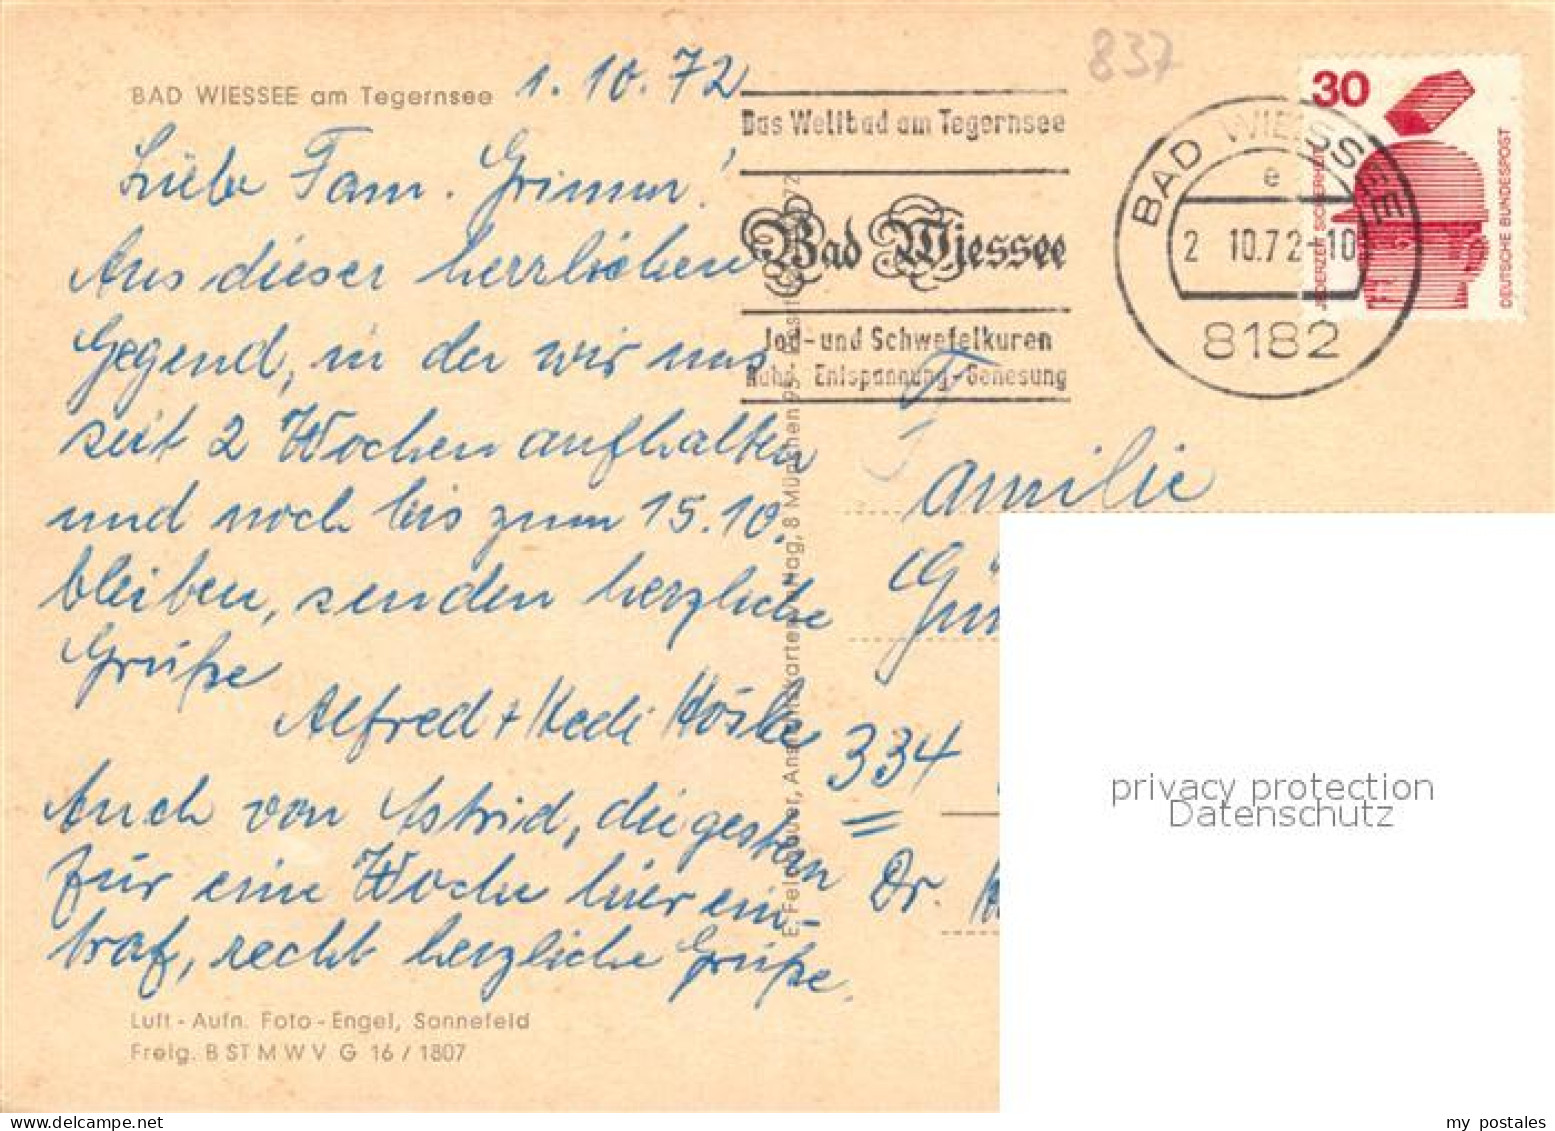 BAD WIESSEE am Tegernsee
1.10.72
Liebe Fam. Grimm!
Aus dieser herrlichen
Gegend, in der wir uns
seit 2 Wochen aufhalten
und noch bis zum 15.10.
bleiben, senden herzliche
Grüße
Alfred + Hedi
Auch von Astrid, die gestern
für eine Woche hier ein-
traf, recht herzliche Grüße.
Luft - Aufn. Foto - Engel, Sonnefeld
Freig. B ST M W V G 16 / 1807
837
Das Weltbad am Tegernsee
Bad Wiessee
Jod- und Schwefelkuren
Ruhe - Entspannung - Genesung
BAD WIESSEE
e
2 10.72-10
8182
30
JEDERZEIT SICHERHEIT
DEUTSCHE BUNDESPOST
Familie
334
Dr.
privacy protection
Datenschutz
my postales